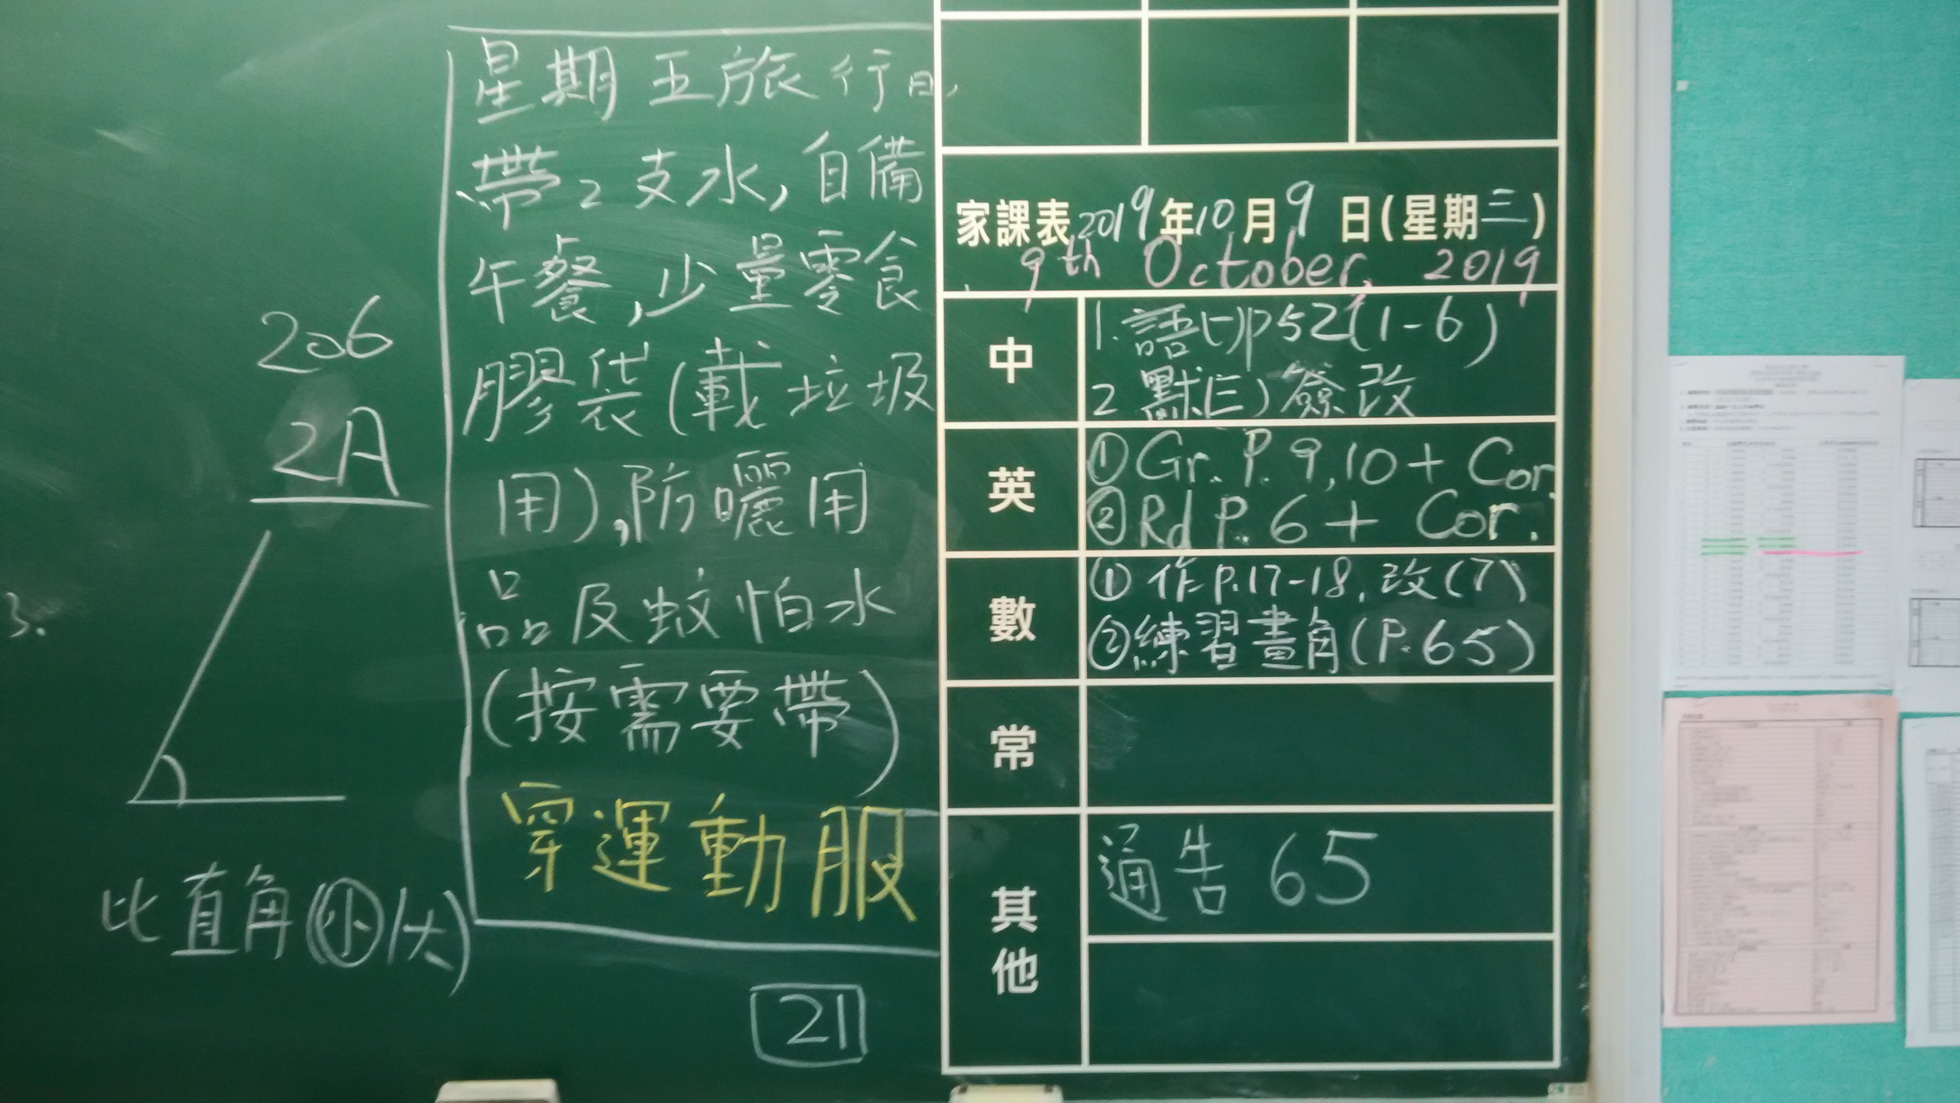 206
2A
3.
比直角(小/大)
星期五旅行日,
帶2支水,自備
午餐,少量零食
膠袋(載垃圾
用),防曬用
品及蚊怕水
(按需要帶)
穿運動服
21
家課表2019年10月9日(星期三)
9th October, 2019
中
1. 語(一)P52(1-6)
2 默(三)簽改
英
① Gr. P. 9,10 + Cor.
② Rd P. 6 + Cor.
數
① 作P.17-18, 改(7)
② 練習畫角(P.65)
常
其他
通告 65